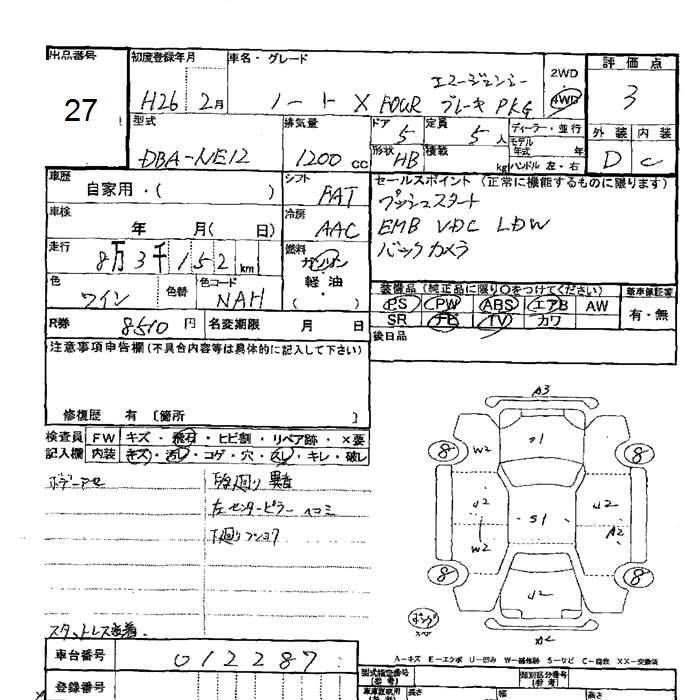 出品番号 27
初度登録年月 H26 2月
車名・グレード ノート X FOUR エマージェンシー ブレーキ PKG
2WD 4WD
評価点 3
外装 D 内装 C
型式 DBA-NE12
排気量 1200 cc
ドア 5 定員 5人
形状 HB 積載 kg
ディーラー・並行
モデル年式 年
ハンドル 左・右
車歴 自家用・( )
シフト FAT
セールスポイント (正常に機能するものに限ります)
プッシュスタート
EMB VDC LDW
バックカメラ
車検 年 月( 日)
冷房 AAC
走行 8万3千152km
燃料 ガソリン 軽油・( )
色 ワイン 色替 色コード NAH
装備品 (純正品に限り○をつけてください) 新車保証書
PS PW ABS エアB AW 有・無
SR ナビ TV カワ
後日品
R券 8510円 名変期限 月 日
注意事項申告欄(不具合内容等は具体的に記入して下さい)
修復歴 有 〔箇所 〕
検査員記入欄
FW キズ・飛石・ヒビ割・リペア跡・×要
内装 キズ・汚レ・コゲ・穴・スレ・キレ・破レ
左センターピラー ヘコミ
A3
W2 S1 U2 A2
8 8 8 8
A-キズ E-エクボ U-凹み W-補修跡 S-サビ C-腐食 XX-交換済
車台番号 012287
登録番号
型式指定番号(参考) 類別区分番号(参考)
長さ 幅 高さ